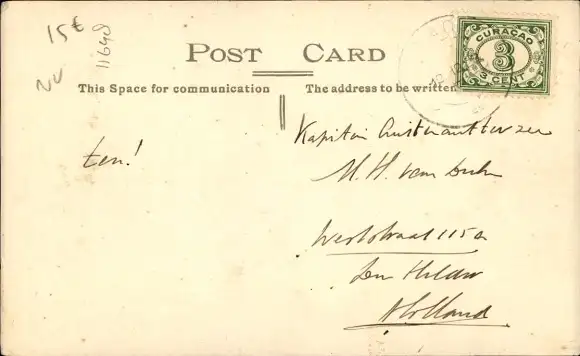 15€
NV
POST CARD
This Space for communication
The address to be written
CURAÇAO
3
3 CENT
Kapitein
M. H. van
Weststraat 115a
Den Helder
Holland